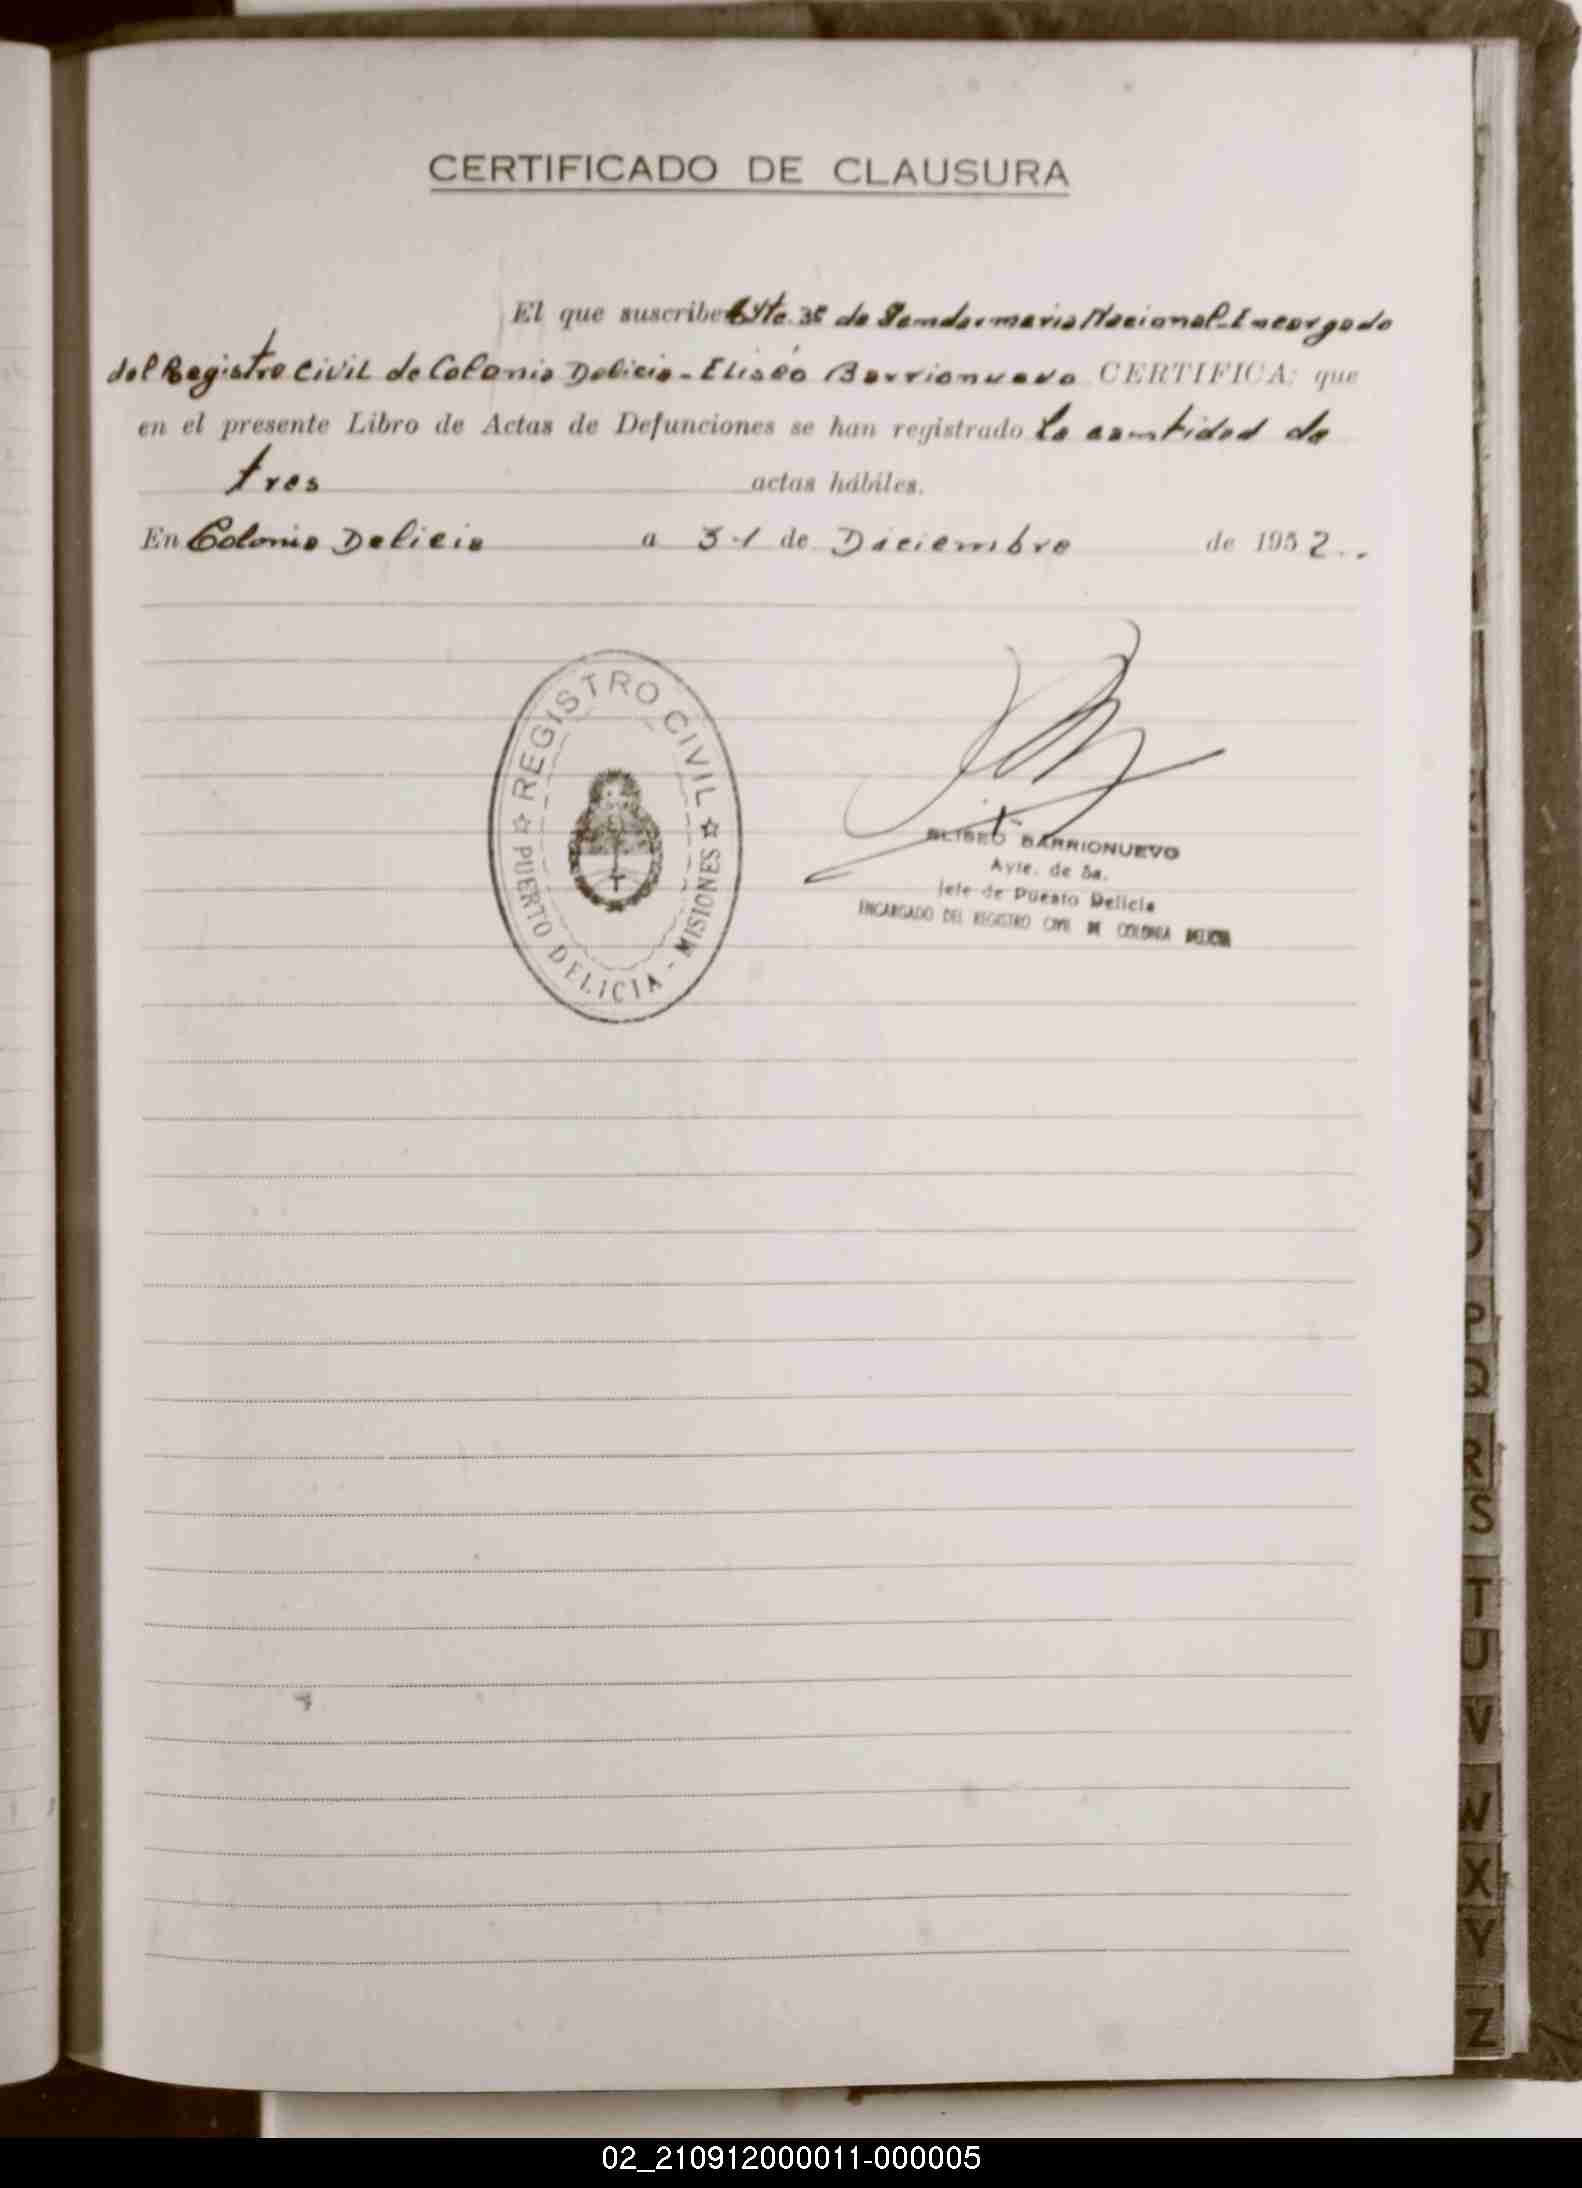 CERTIFICADO DE CLAUSURA
El que suscribe Ayte. 3º de Gendarmeria Nacional-Encargado
del Registro Civil de Colonia Delicia - Eliséo Barrionuevo CERTIFICA: que
en el presente Libro de Actas de Defunciones se han registrado la cantidad de
tres actas hábiles.
En Colonia Delicia a 31 de Diciembre de 1952..
REGISTRO CIVIL
PUERTO DELICIA - MISIONES
ELISEO BARRIONUEVO
Ayte. de 3a.
Jefe de Puesto Delicia
ENCARGADO DEL REGISTRO CIVIL DE COLONIA DELICIA
Ñ
O
P
Q
R
S
T
U
V
W
X
Y
Z
02_210912000011-000005